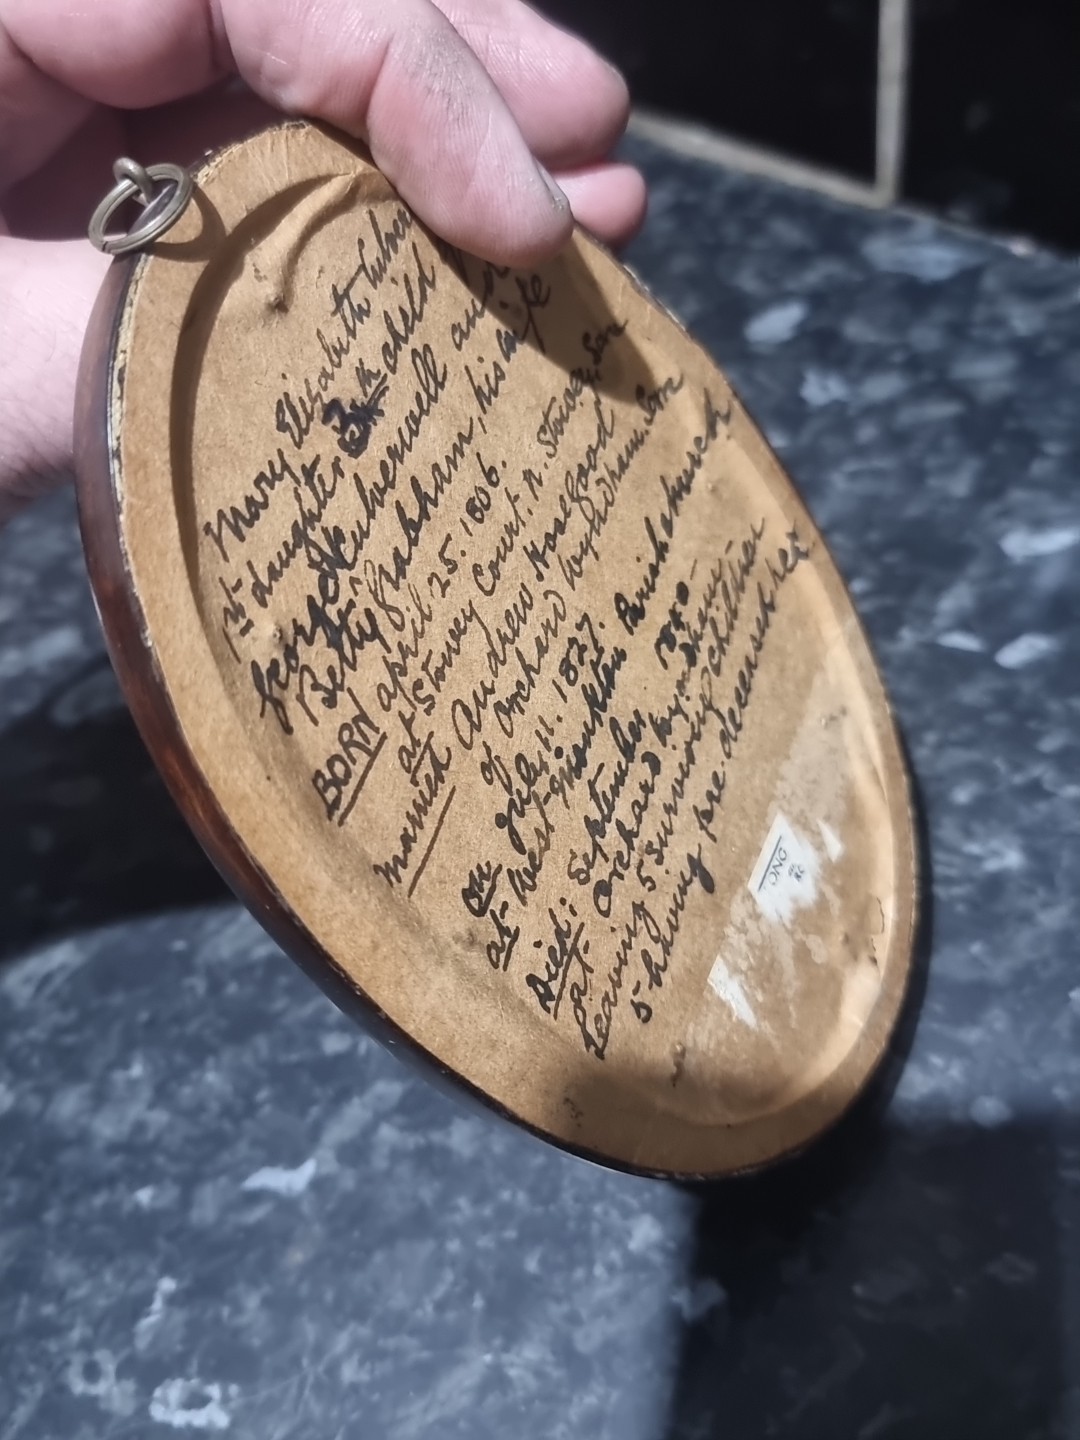 Mary Elizabeth
1st daughter. 3rd child
George Culverwell and
Betty Brabham, his wife
BORN april 25. 1806.
at Stowey Court. N. Stowey, Som
Married Andrew Hosegood
of Orchard Wyndham. Som
on July 11. 1827.
at West-Monkton Parish church
Died: September 1880
at Orchard Wyndham -
Leaving 5 surviving children
5 having pre-deceased her